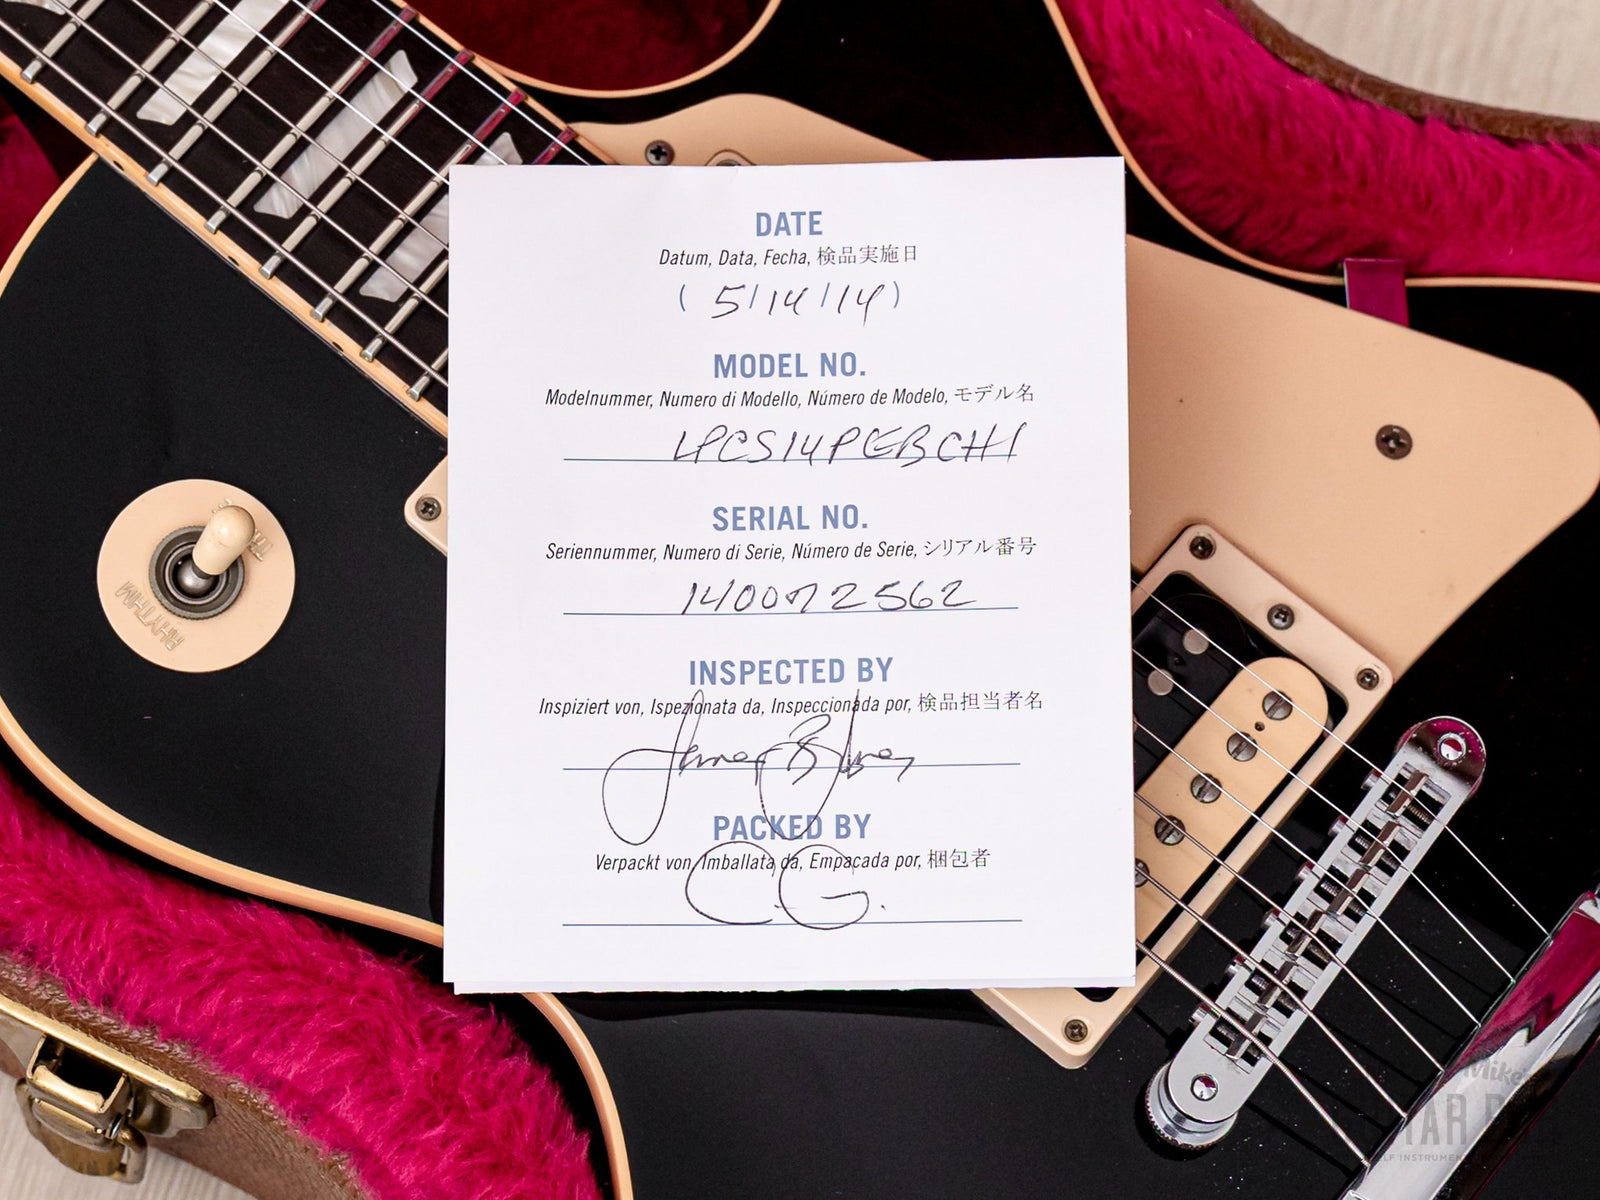 DATE
Datum, Data, Fecha, 検品実施日
( 5/14/14 )
MODEL NO.
Modelnummer, Numero di Modello, Número de Modelo, モデル名
LPCS14PEBCH1
SERIAL NO.
Seriennummer, Numero di Serie, Número de Serie, シリアル番号
140072562
INSPECTED BY
Inspiziert von, Ispezionata da, Inspeccionada por, 検品担当者名
PACKED BY
Verpackt von, Imballata da, Empacada por, 梱包者
C.G.
RHYTHM
Mike's